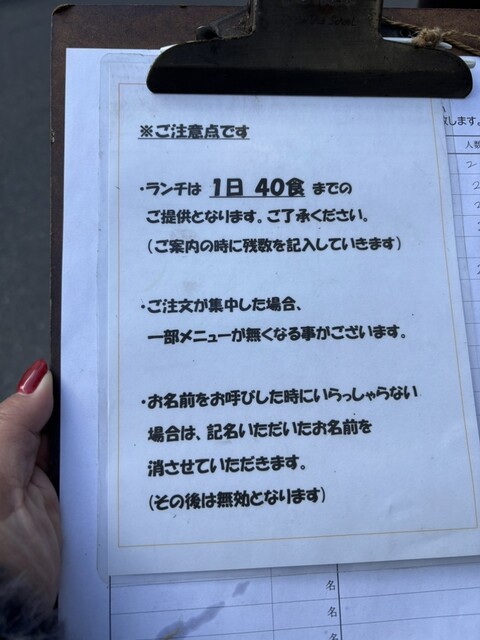 ※ご注意点です
・ランチは 1日 40食 までの
ご提供となります。ご了承ください。
(ご案内の時に残数を記入していきます)
・ご注文が集中した場合、
一部メニューが無くなる事がございます。
・お名前をお呼びした時にいらっしゃらない
場合は、記名いただいたお名前を
消させていただきます。
(その後は無効となります)
します。
人数
名
名
名